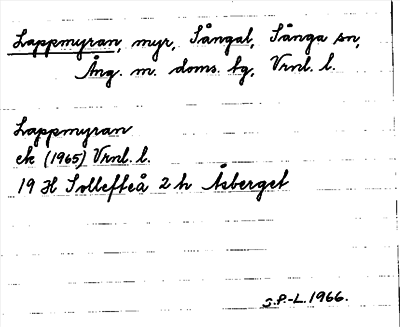 Lappmyran, myr, Sångal, Sånga sn,
Ång. m. doms. bg, Vrnl. l.
Lappmyran
ek (1965) Vrnl. l.
19 H Sollefteå 2 h Åsberget
S.P.-L. 1966.